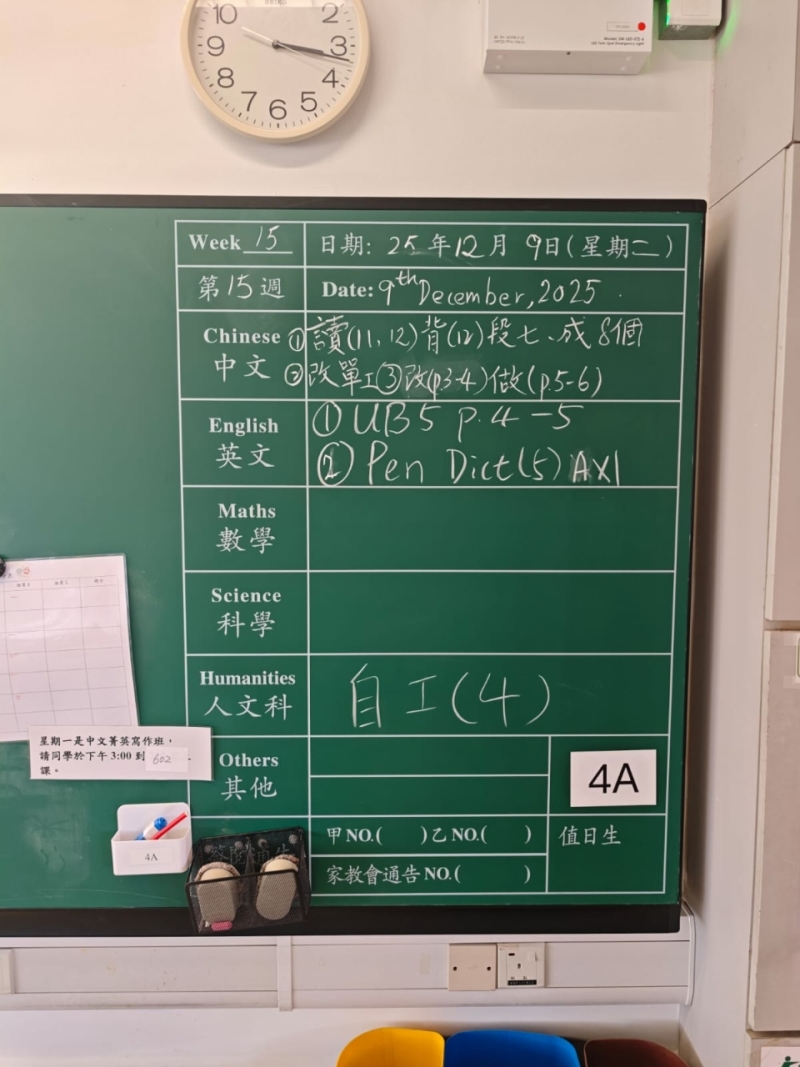 10 2
9 3
8 4
7 6 5
Week 15
日期: 25年12月9日(星期二)
第15週
Date: 9th December, 2025
Chinese
中文
①讀(11、12)背(12)段七、成8個
②改單工③改(p3-4)做(p.5-6)
English
英文
① UB5 p.4-5
② Pen Dict(5) AX1
Maths
數學
Science
科學
Humanities
人文科
自工(4)
星期一是中文菁英寫作班,
請同學於下午 3:00 到 602
課。
Others
其他
4A
甲NO.( )乙NO.( )
值日生
家教會通告NO.( )
4A